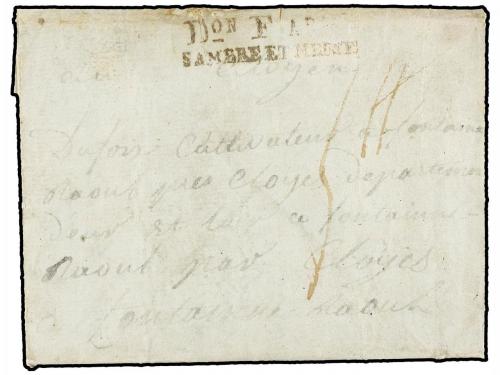 Don F AR
SAMBRE ET MEUSE
au Citoyen
Dufour Cultivateur a fontaine
Raoul pres Cloyes departemen
deur et loir a fontaine
Raoul par Cloyes
a fontaine Raoul